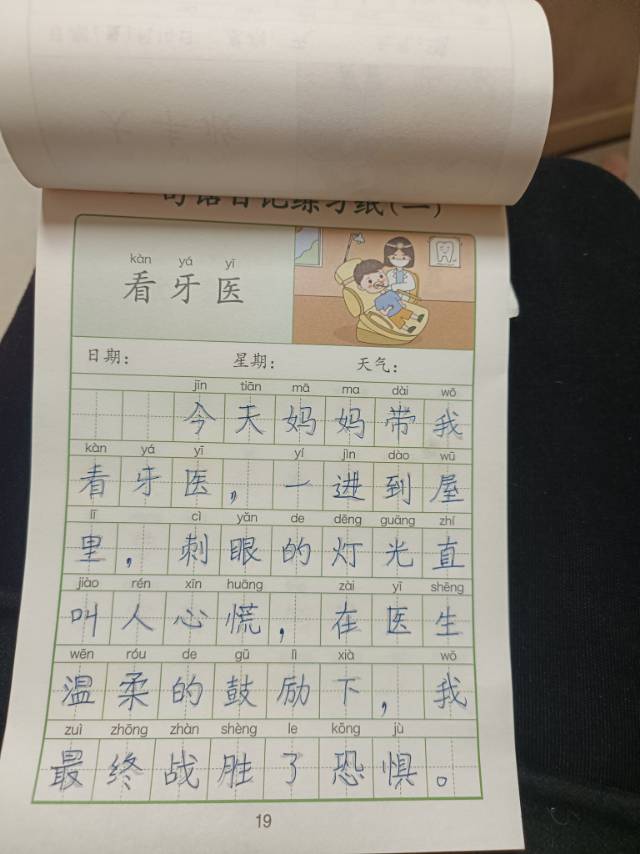 句话日记练习纸(二)
kàn yá yī
看牙医
日期： 星期： 天气：
jīn tiān mā ma dài wǒ
今天妈妈带我
kàn yá yī yí jìn dào wū
看牙医，一进到屋
lǐ cì yǎn de dēng guāng zhí
里，刺眼的灯光直
jiào rén xīn huāng zài yī shēng
叫人心慌，在医生
wēn róu de gǔ lì xià wǒ
温柔的鼓励下，我
zuì zhōng zhàn shèng le kǒng jù
最终战胜了恐惧。
19